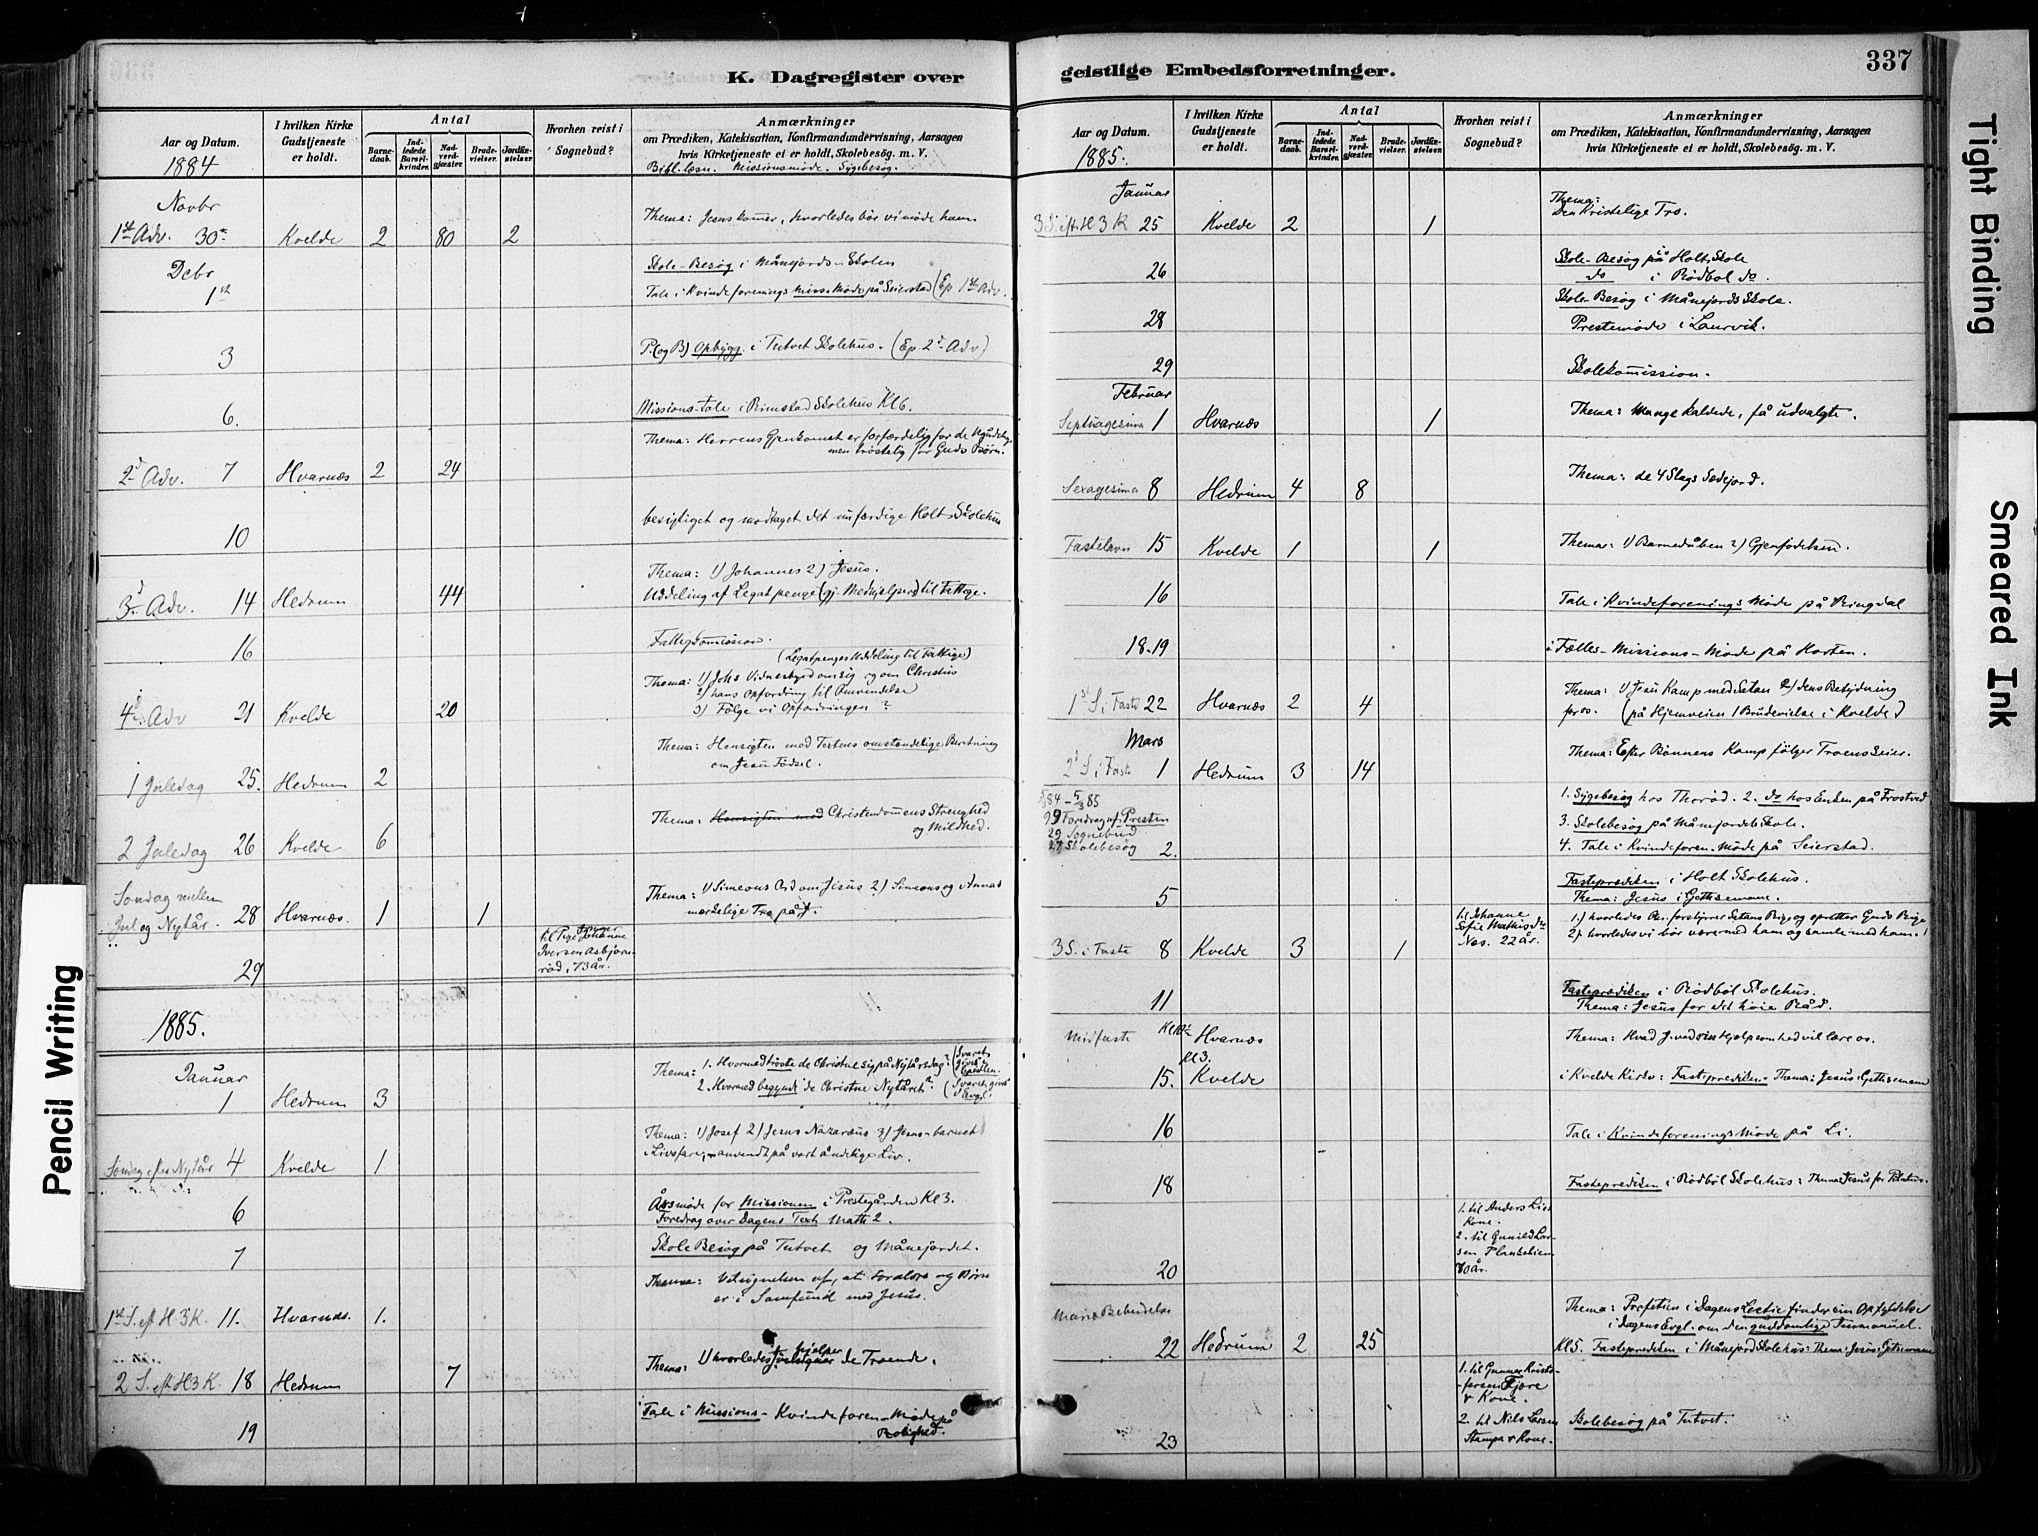 K. Dagregister over
Aar og Datum.
1884
I hvilken Kirke
Gudstjeneste
er holdt.
Antal
Barne-
daab.
Ind-
ledede
Barsel-
kvinder.
Nad-
verd-
gjæster.
Brude-
vielser.
Jordfæ-
stelser
Hvorhen reist i
Sognebud?
Anmærkninger
om Prædiken, Katekisation, Konfirmandundervisning, Aarsagen
hvis Kirketjeneste ei er holdt, Skolebesög. m. V.
Bibl. læsn. Missionsmöde. Sygebesög.
Novbr
Thema: Jesus komer, hvorledes bör vi möde ham
1st Adv. 30te Kvelde 2 80 2
Decbr
Skole-Besög i Månejords-Skolen
1st
Tale i Kvindeforenings Miss. Möde på Seierstad (Ep 1st Adv.
3 P. (og B) Opbygg. i Tutvet Skolehus. (Ep 2d Adv)
6. Missions-Tale i Rimstad Skolehus Kl 6.
Thema: Herrens Gjenkomst er forfærdelig for de Ugudelig.
men tröstelig for Guds Börn.
2d Adv. 7 Hvarnæs 2 24
10 besigtiget og modtaget det nu færdige Holt-Skolehus
Thema: 1) Johannes 2) Jesus.
3d Adv. 14 Hedrum 44 Uddeling af Legatpenge (gj. Medhjelpere) til Fattige.
16 Fattigkomission.
(Legatpenges Uddeling til Fattige)
Thema: 1) Johs Vidnesbyrd om sig og om Christus
2) hans Opfordring til Omvendelse
3) Fölge vi Opfordringen?
4d Adv 21 Kvelde 20
Thema: Hensigten med Textens omstendelige Beretning
om Jesu Födsel.
1 Juledag 25. Hedrum 2
Thema: Hensigten med Christendomens Strenghed
og Mildhed.
2 Juledag 26 Kvelde 6
Söndag mellem
Jul og Nytår. 28 Hvarnæs. 1 1
Thema: 1) Simeons Ord om Jesus 2) Simeons og Annas
mærkelige Tro på J.
29 til Pige Johanne
Iversen Asbjörn-
röd, 73 år.
1885.
Januar
Thema: 1. Hvormed tröste de Christne sig på Nytårsdag? (Svaret
gives i
Epistlen.
2. Hvormed begynde de Christne Nytåret? (Svaret gives
i Evgl.
1 Hedrum 3
Thema: 1) Josef 2) Jesus Nazaræus 3) Jesus-barnet
i Livsfare, - anvendt på vort åndelige Liv.
Söndag efter Nytår 4 Kvelde 1
6 Årsmöde for Missionen i Prestegården Kl 3.
Foredrag over Dagens Text Math 2.
7 Skole Besög på Tutvet og Månejordet.
Thema: Velsignelsen af, at Foreldre og Börn
er i Samfund med Jesus.
1st S. eft H 3 K. 11. Hvarnæs. 1.
Thema: 1) hvorledes J. hjelper de Troende.
2 S. eft H 3 K. 18 Hedrum 7
19 Tale i Missions-Kvindeforen-Möde på
Rolighed.
geistlige Embedsforretninger.
337
Aar og Datum.
1885.
I hvilken Kirke
Gudstjeneste
er holdt.
Antal
Barne-
daab.
Ind-
ledede
Barsel-
kvinder.
Nad-
verd-
gjæster.
Brude-
vielser.
Jordfæ-
stelser
Hvorhen reist i
Sognebud?
Anmærkninger
om Prædiken, Katekisation, Konfirmandundervisning, Aarsagen
hvis Kirketjeneste ei er holdt, Skolebesög. m. V.
Januar
3 S. eft. H 3 K 25 Kvelde 2 1
Thema:
Den Kristelige Tro.
26 Skole-Besög på Holt Skole
do i Rödbol do.
28 Skole-Besög i Månejords Skole.
Prestemöde i Laurvik.
29 Skolekomission.
Februar
Septuagesima 1 Hvarnæs 1 Thema: Mange kaldede, få udvalgte.
Sexagesima 8 Hedrum 4 8 Thema: de 4 Slags Sædejord.
Fastelavn 15 Kvelde 1 1 Thema: 1) Barnedåben 2) Gjenfödelsen.
16 Tale i Kvindeforenings Möde på Ringdal
18-19 i Fælles-Missions-Möde på Horten.
1st S. i Faste 22 Hvarnæs 2 4
Thema: 1) Jesu Kamp med Satan 2) dens Betydning
for os. (på Hjemveien 1 Brudevielse i Kvelde)
Mars
2d S. i Faste 1 Hedrum 3 14 Thema: Efter Bönnens Kamp fölger Troens Seier.
5/3 84 - 5/3 85
99 Foredrag af Presten
29 Sognebud
27 Skolebesög 2.
1. Sygebesög hos Thoröd. 2. do hos Enken på Frostved
3. Skolebesög på Månejordets Skole.
4. Tale i Kvindeforen. Möde på Seierstad.
5 Fasteprædiken i Holt Skolehus.
Thema: Jesus i Gethsemane.
3 S. i Faste 8 Kvelde 3 1
til Johanne
Sofie Mathisdtr
Nes. 22 år.
1.) hvorledes Chr. forstyrrer Satans Rige og opretter Guds Rige
2) hvorledes vi bör være med ham og samle med ham.
11 Fasteprædiken i Rödböl Skolehus.
Thema: Jesus for det höie Råd.
Midfaste Kl 10½ Hvarnæs Thema: Hvad J. underhjelpsomhed vil lære os.
Kl 3.
15. Kvelde i Kvelde Kirke: Fasteprediken. Thema: Jesus i Gethsemane
16 Tale i Kvindeforenings Möde på Li.
18 Fasteprediken i Rödböl Skolehus: Thema: Jesus for Pilatus.
20 1. til Anders Lies
Kone.
2. til Gunild Lar-
sen Plankelien
70 år.
Mariæ Bebudelse
Thema: Profetien i Dagens Lectie finder sin Opfyldelse
i Dagens Evgl. om den guddomlige Immanuel.
22 Hedrum 2 25 Kl 5. Fasteprediken i Månejord Skolehus: Thema: Jesus i Getsemane
1. til Gunner Krist-
fersen Fjære
& Kone.
23 2. til Nils Larsen
Stampa & Kone. Skolebesög på Tutvet.
Tight Binding
Smeared Ink
Pencil Writing